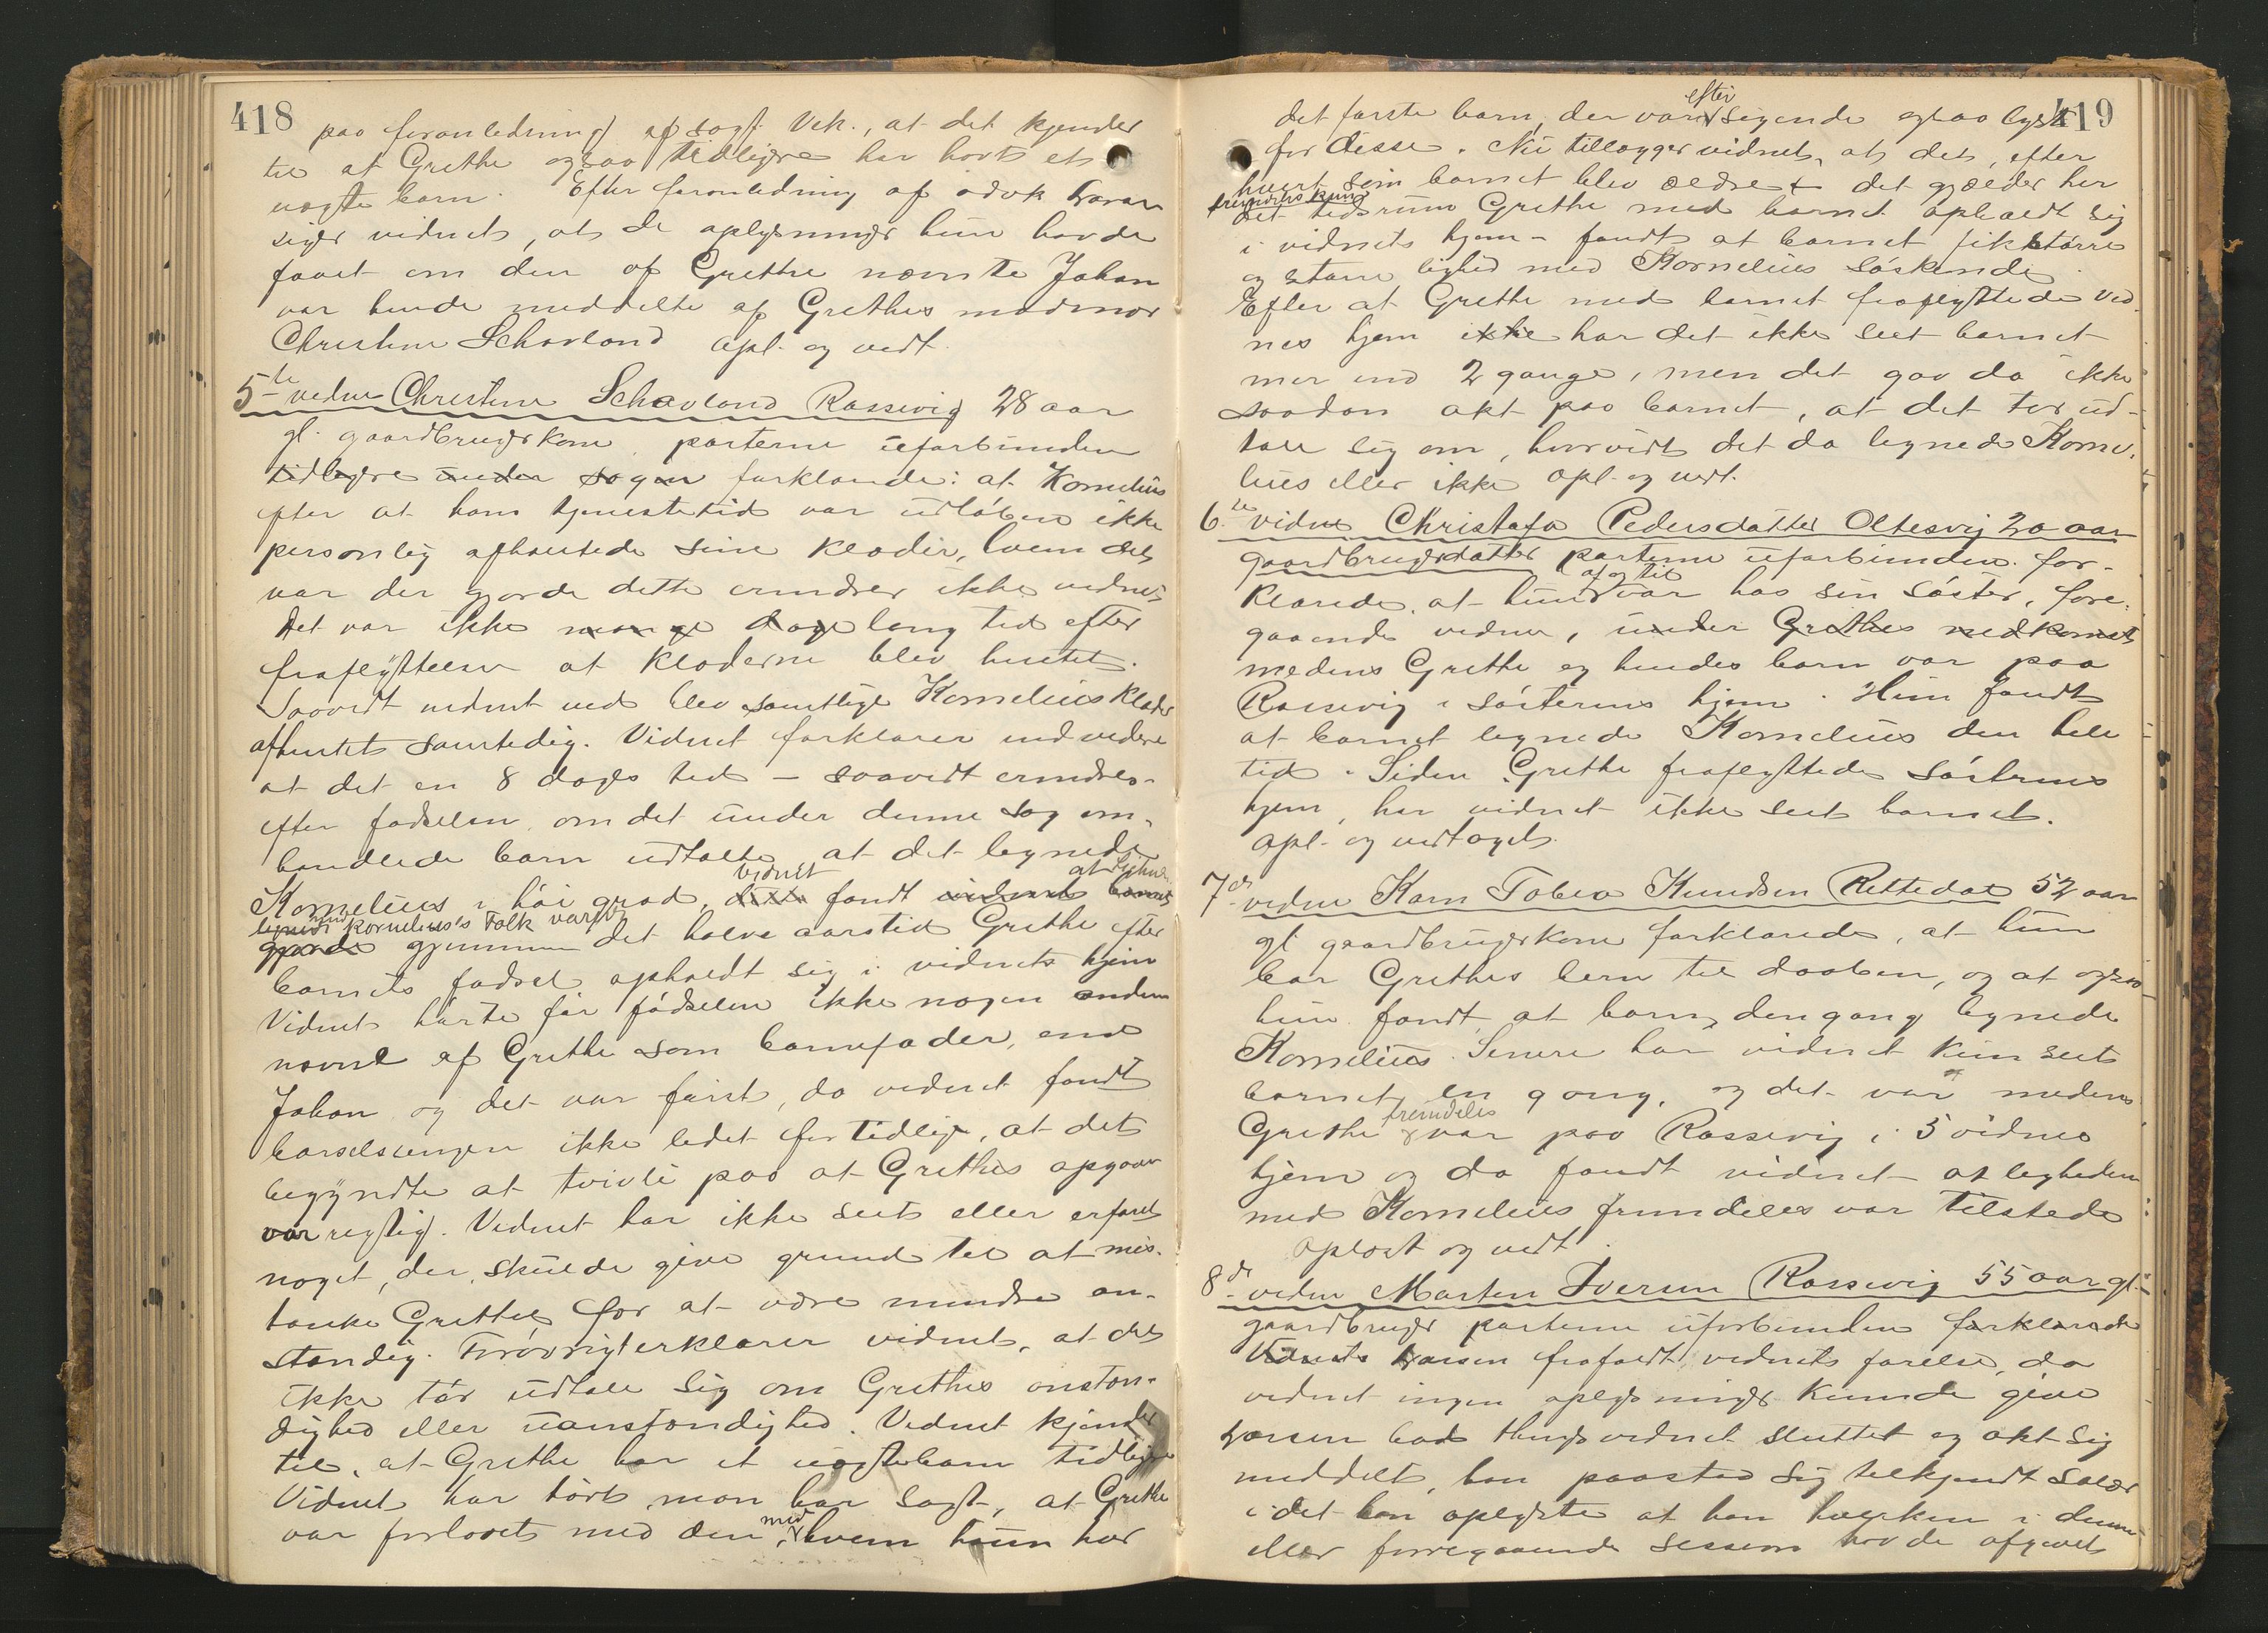 418
paa foranledning af sagf. Vek., at det kjender
til at Grethe ogsaa tidligere har havt et
uægte barn. Efter foranledning af advok
siger vidnet, at de oplysninger hun havde
faaet om den af Grethe nævnte Johan
var hende meddelte af Grethes madmor
Christine Schavland opl. og vedt.
5te vidne Christine Schavland Rassevig 28 aar
gl. gaardbrugerkone, parterne uforbunden
tidligere under sagen forklarede: at Kornelius
efter at hans tjenestetid var udløben ikke
personlig afhentede sine klæder, hvem det
var der gjorde dette erindrer ikke vidnet
det var ikke mange dage lang tid efter
fraflyttelsen at klæderne blev hentet.
Saavidt vidnet ved blev samtlige Kornelius klæder
afhentet samtidig. Vidnet forklarer endvidere
at det en 8 dages tid – saavidt erindres
efter fødselen om det under denne sag om-
handlede barn udtalte, at det lignede
Kornelius i høi grad, vidnet fandt vidnet barnet at
lignede Kornelius's Folk var
gjorde gjennem det halve aarstid Grethe efter
barnets fødsel opholdt sig i vidnets hjem
Vidnet hørte før fødselen ikke nogen anden
nævnt af Grethe som barnefader, end
Johan og det var først, da vidnet fandt
barselsengen ikke ledet for tidlig, at det
begyndte at tvivle paa at Grethes opgave
var rigtig. Vidnet har ikke seet eller erfaret
noget, der skulde give grund til at mis-
tænke Grethe for at være mindre an-
stændig. Forøvrigt erklærer vidnet, at det
ikke tør udtale sig om Grethes anstæn-
dighed eller uanstændighed. Vidnet kjender
til, at Grethe har et uægtebarn tidligere
Vidnet har hørt man har sagt, at Grethe
var forlovet med den, med hvem hun har
419
det første barn, der var efter sigende ogsaa lyst
for disse. Nu tillægger vidnet, at det, efter
hvert som barnet blev ældre + det gjælder her
fremdeles kun
det tidsrum Grethe med barnet opholdt sig
i vidnets hjem – fandt at barnet fik større
og større lighed med Kornelius søskende.
Efter at Grethe med barnet fraflyttede vid-
nes hjem ikke har det ikke seet barnet
mer end 2 gange, men det gav da ikke
saadan akt paa barnet, at det tør ud-
tale sig om, hvorvidt det da lignede Korne-
lius eller ikke opl. og vedt.
6te vidne Christofa Pedersdatter Oltesvig 20 aar
gaardbrugerdatter parterne uforbunden for-
klarede, at hun af og til var hos sin søster, fore-
gaaende vidne, under Grethes nedkomst
medens Grethe og hendes barn var paa
Rassevig i søsterens hjem. Hun fandt
at barnet lignede Kornelius den hele
tid. Siden Grethe fraflyttede søsterens
hjem, har vidnet ikke seet barnet.
Opl. og vedtaget.
7de vidne Karn Tobea Knudsen Rettedal 52 aar
gl. gaardbrugerkone forklarede, at hun
bar Grethes barn til daaben, og at ogsaa
hun fandt at barn, dengang lignede
Kornelius. Senere har vidnet kun seet
barnet en gang, og det var medens
Grethe fremdeles var paa Rassevig i 5 vidnes
hjem og da fandt vidnet at ligheden
med Kornelius fremdeles var tilstede
Oplæst og vedt.
8de vidne Marten Iversen Rassevig 55 aar gl.
gaardbruger parterne uforbunden forklarede
Vidnets frafaldt vidnets førelse, da
vidnet ingen oplysninger kunde give
bad thingsvidnet sluttet og akt sig
meddelt, han paastod sig tilkjendt salær
i det han oplyste at han hverken i denne
eller foregaaende session havde afgivet